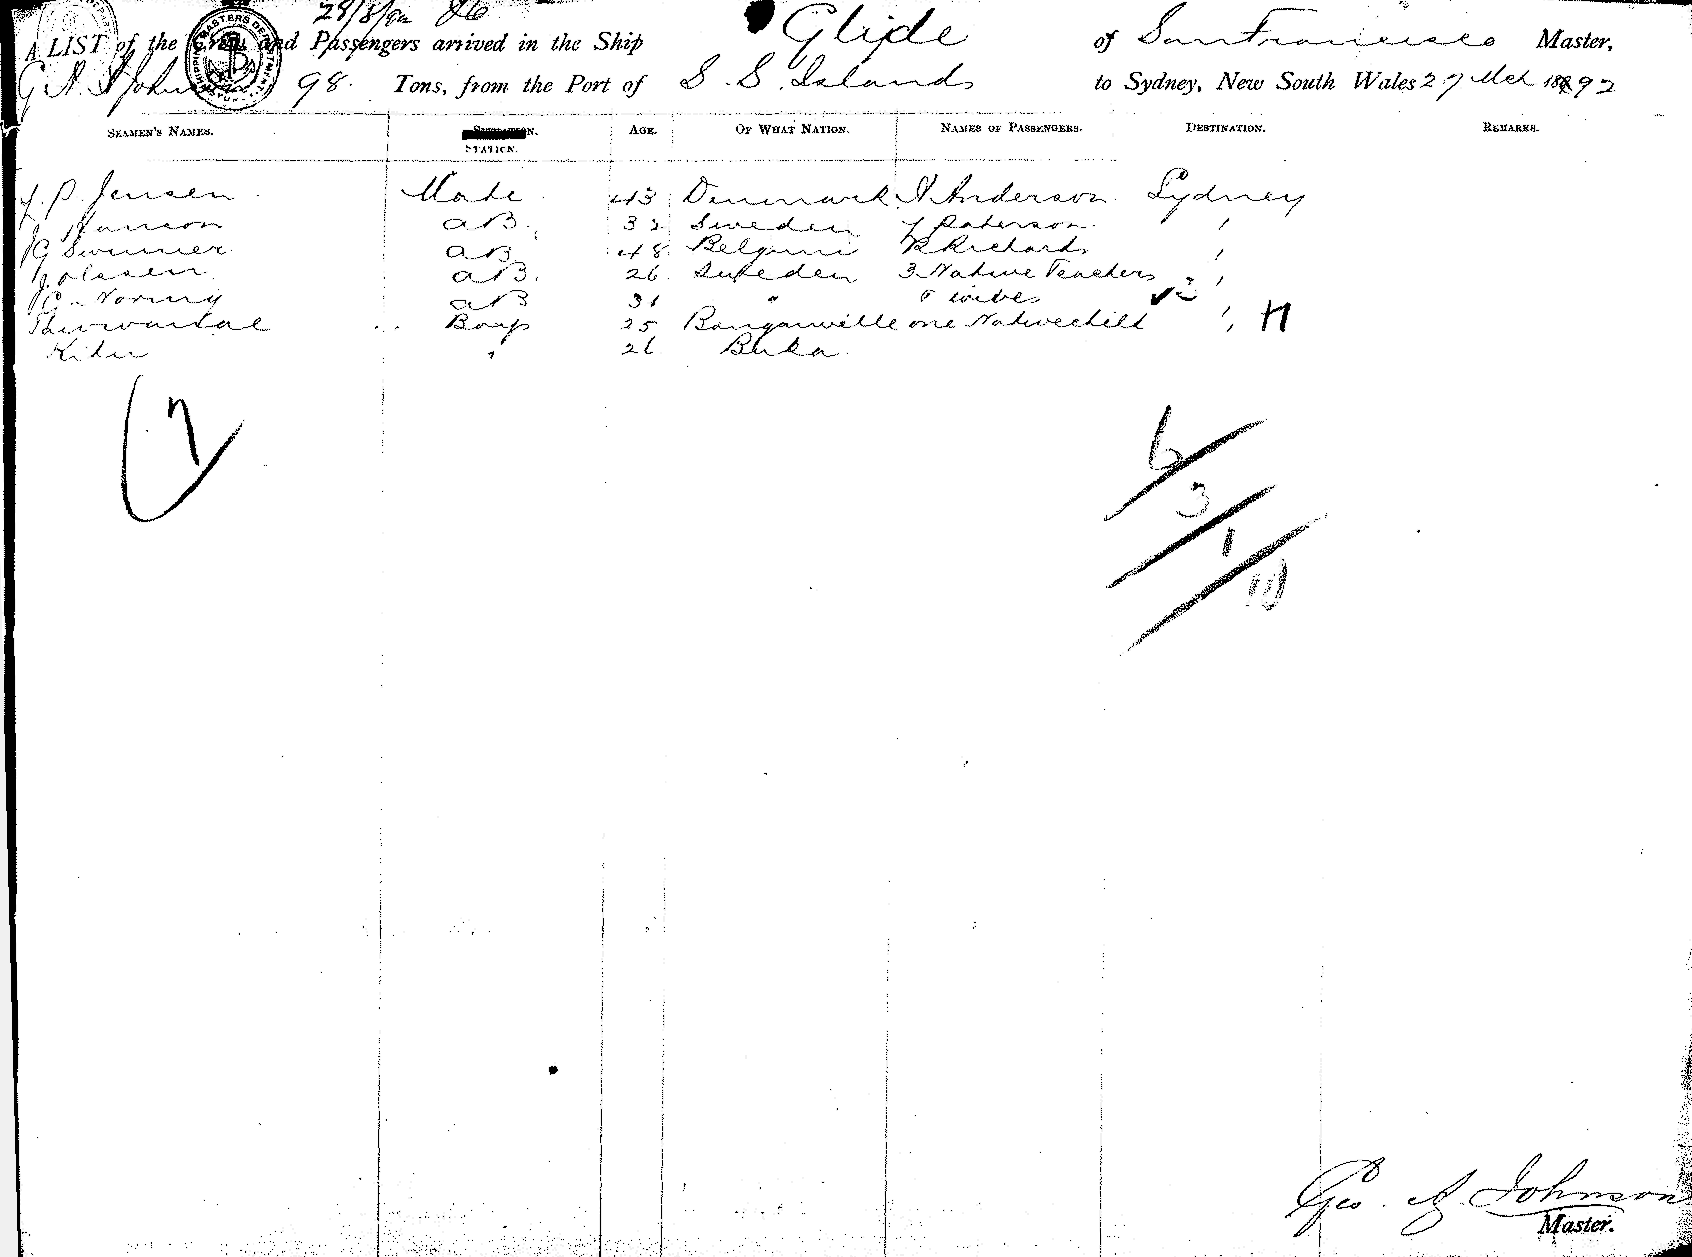 28/3/92 86
A LIST of the Crew and Passengers arrived in the Ship Glide of San Francisco Master,
G A Johnson 98 Tons, from the Port of S. S. Islands to Sydney, New South Wales 27 Mch 1892
SEAMEN'S NAMES. STATION. AGE. OF WHAT NATION. NAMES OF PASSENGERS. DESTINATION. REMARKS.
J. P. Jensen Mate 43 Denmark A Anderson Sydney
J Hanson AB. 32 Sweden J Paterson "
AB 48 Belgium R Richards "
J Olssen AB. 26 Sweden 3 Native Teachers "
AB 31 " wives
Boys 25 Bouganville one Native child " H
" 26 Buka
7
6/3/1/10
Geo. A. Johnson
Master.